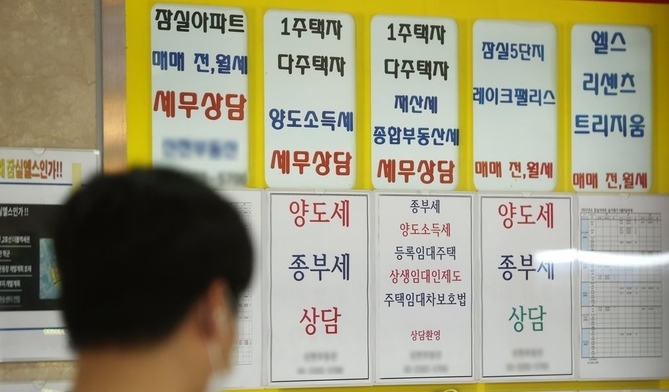 잠실아파트
매매 전,월세
세무상담
1주택자
다주택자
양도소득세
세무상담
1주택자
다주택자
재산세
종합부동산세
세무상담
잠실5단지
레이크팰리스
매매 전,월세
엘스
리센츠
트리지움
매매 전,월세
잠실엘스인가!!
양도세
종부세
상담
종부세
양도소득세
등록임대주택
상생임대인제도
주택임대차보호법
상담환영
양도세
종부세
상담